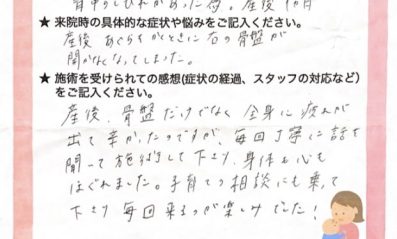 背中のしびれがあった為。産後
★ 来院時の具体的な症状や悩みをご記入ください。
産後 あぐらかくときに 右の骨盤が
開かなくなってしまった。
★ 施術を受けられての感想(症状の経過、スタッフの対応など)
をご記入ください。
産後、骨盤だけでなく 全身に疲れが
出て 辛かったのですが、毎回丁寧に話を
聞って施術して下さり、身体も心も
ほぐれました。子育ての相談にも乗って
下さり 毎回来るのが楽しみでした!